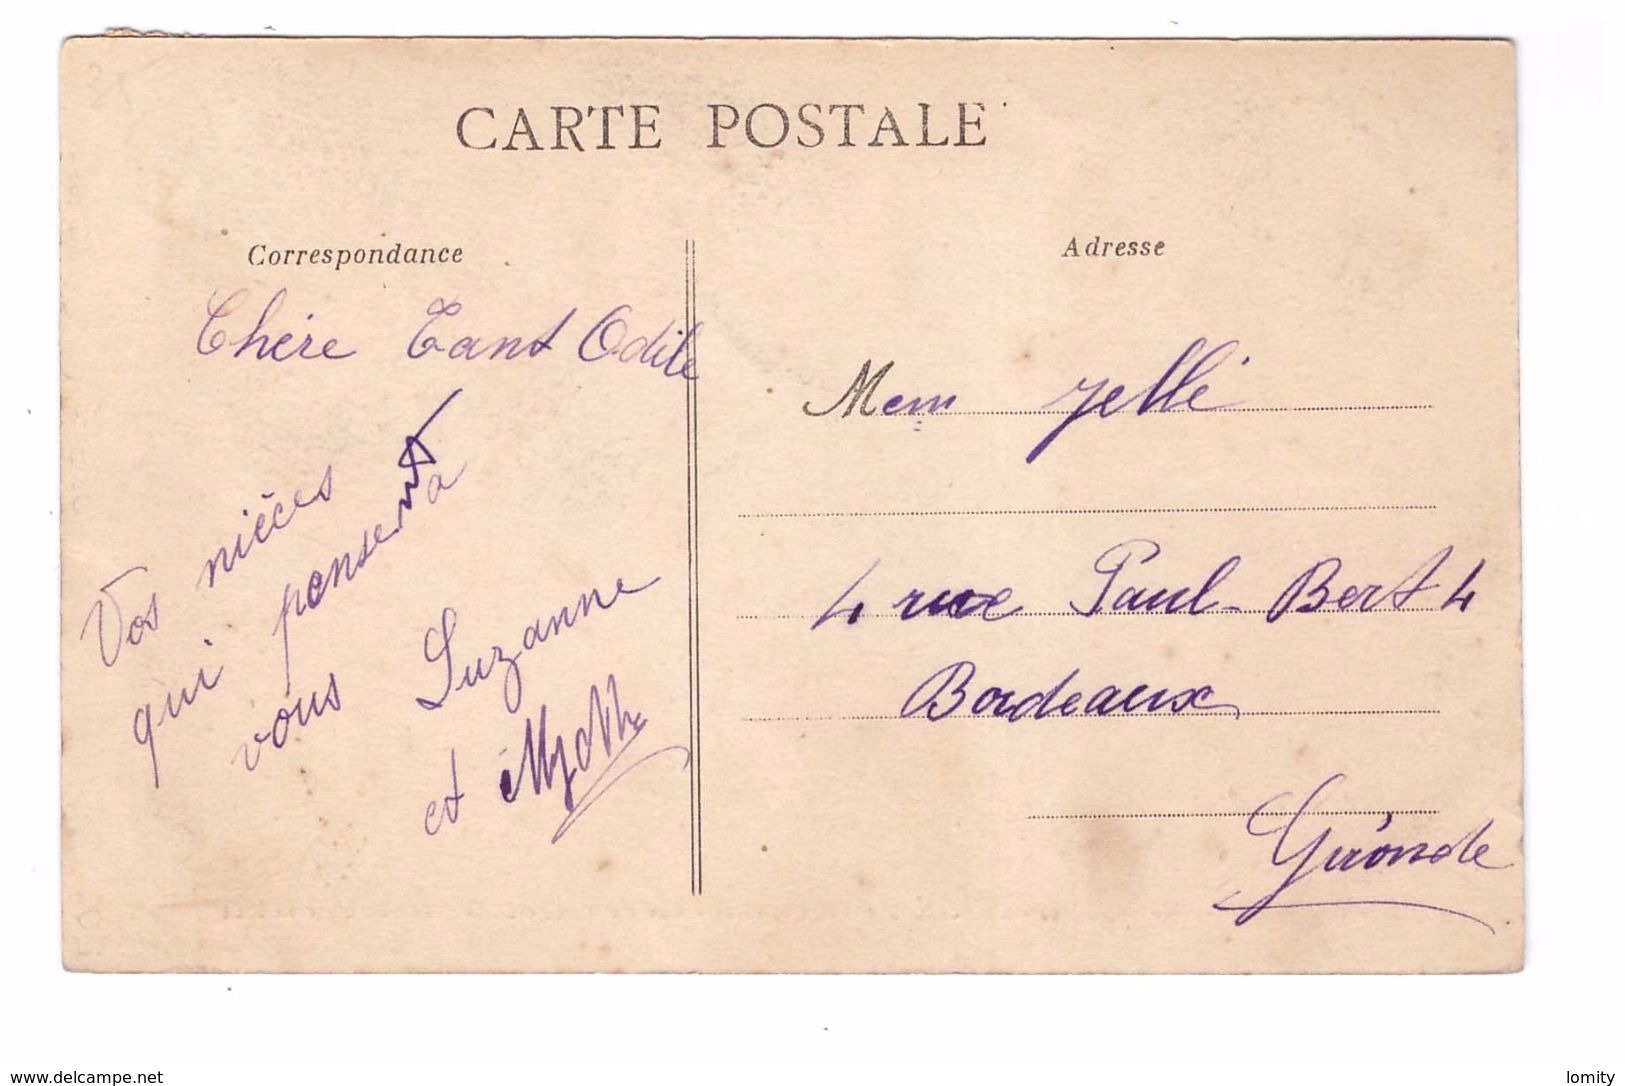 CARTE POSTALE
Correspondance
Chère Tant Odile
Vos nièces
qui pensent a
vous Suzanne
et
Adresse
Mem Jellé
4 rue Paul-Bert 4
Bordeaux
Gironde
www.delcampe.net
lomity